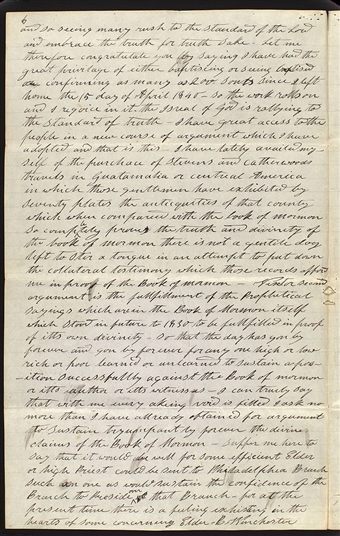 6
and so seeing many rush to the standard of the Lord
and embrace the truth for truth sake - let me
therefore congratulate you by saying I have had the
great privilege of either baptising or seeing baptised
confirming as many as 200 Souls Since I left
home the 15 day of April 1840 - So the work rolls on
and I rejoice in it the Isreal of God is rallying to
the Standard of truth - I have great access to the
people in a new course of argument which I have
adopted and that is this - I have lately availed my
self of the purchase of Stevens and Catherwoods
travels in Guatamalia or central America
in which those gentlemen have exhibited by
Seventy plates the antiequities of that county
which when compared with the book of mormon
So completely proves the truth and divinity of
the book of mormon there is not a gentile dog
left to Stir a tongue in an attempt to put down
the collateral testimony which those records afford
me in proof of the Book of mormon - second
argument is the fullfillment of the Prophetical
Sayings which are in the Book of Mormon itself
which Stood in future to 1830 to be fullfilled in proof
of its own divinity - So that the day has gon by
forever and gon by forever for any one high or low
rich or poor learned or unlearned to sustain a position
Successfully against the Book of mormon
or its author or its witnesses - I can truly say
that with me every aking void is filled I ask no
more than I have allready obtained for argument
to Sustain by forever the divine
claims of the Book of Mormon - Suffer me here to
Say that it would be well for some efficient Elder
or high Priest could be sent to Philadelphia Branch
Such an one as would sustain the confidence of the
Branch to Preside over that Branch - for at the
present time there is a feeling exhisting in the
hearts of some concerning Elder B. Winchester